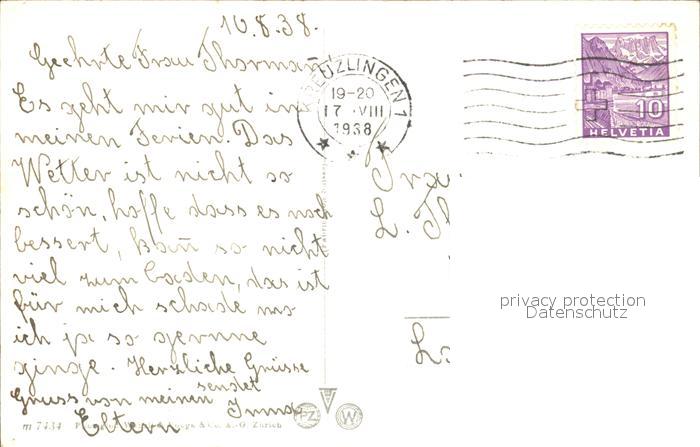 10.8.38.
Geehrte Frau Thorman
Es geht mir gut in
meinen Ferien. Das
Wetter ist nicht so
schön, hoffe dass es noch
bessert, kan̄ so nicht
viel zum baden, das ist
für mich schade wo
ich ja so gernne
ginge. Herzliche Grüsse
sendet
Gruss von meinen Imma
Eltern
KREUZLINGEN 1
19-20
17. VIII
1938
10
HELVETIA
Fra
L. Th
privacy protection
Datenschutz
m 7434
A.-G. Zürich
PZ
W